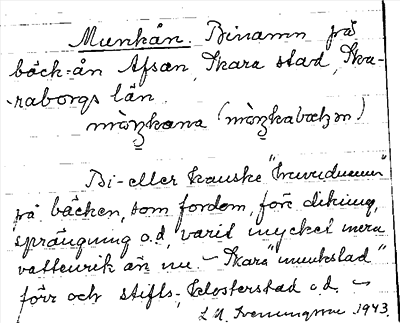 Munkån. Binamn på
bäck=ån Afsen, Skara stad, Ska-
-raborgs län.
mòŋkana (mòŋkabækən)
Bi- eller kanske "huvudnamn"
på bäcken, som fordom, före dikning,
sprängning o.d, varit mycket mera
vattenrik än nu. – Skara "munkstad"
förr och stifts-, klosterstad o.d. –
1943.